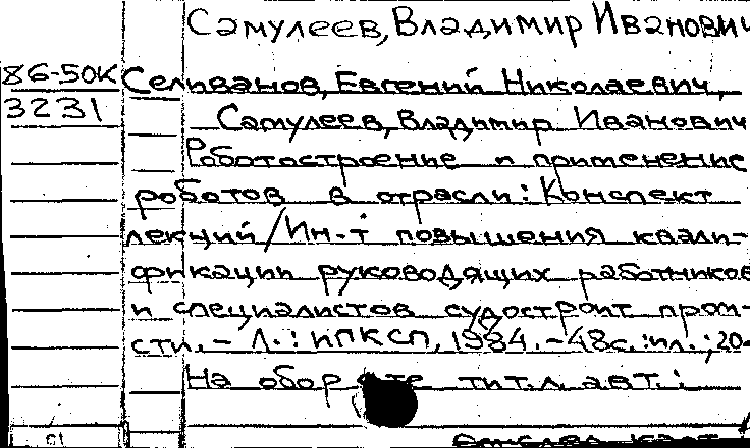 Самулеев, Владимир Иванович
86-50К Селиванов, Евгений Николаевич,
3231 Самулеев, Владимир Иванович
Роботостроение и применение
роботов в отрасли: Конспект
лекций/Ин-т повышения квали-
фикации руководящих работников
и специалистов судостроит пром-
сти. - Л.: ИПКСП, 1984. - 48с.: ил.; 20-
На обороте тит. л. авт.: